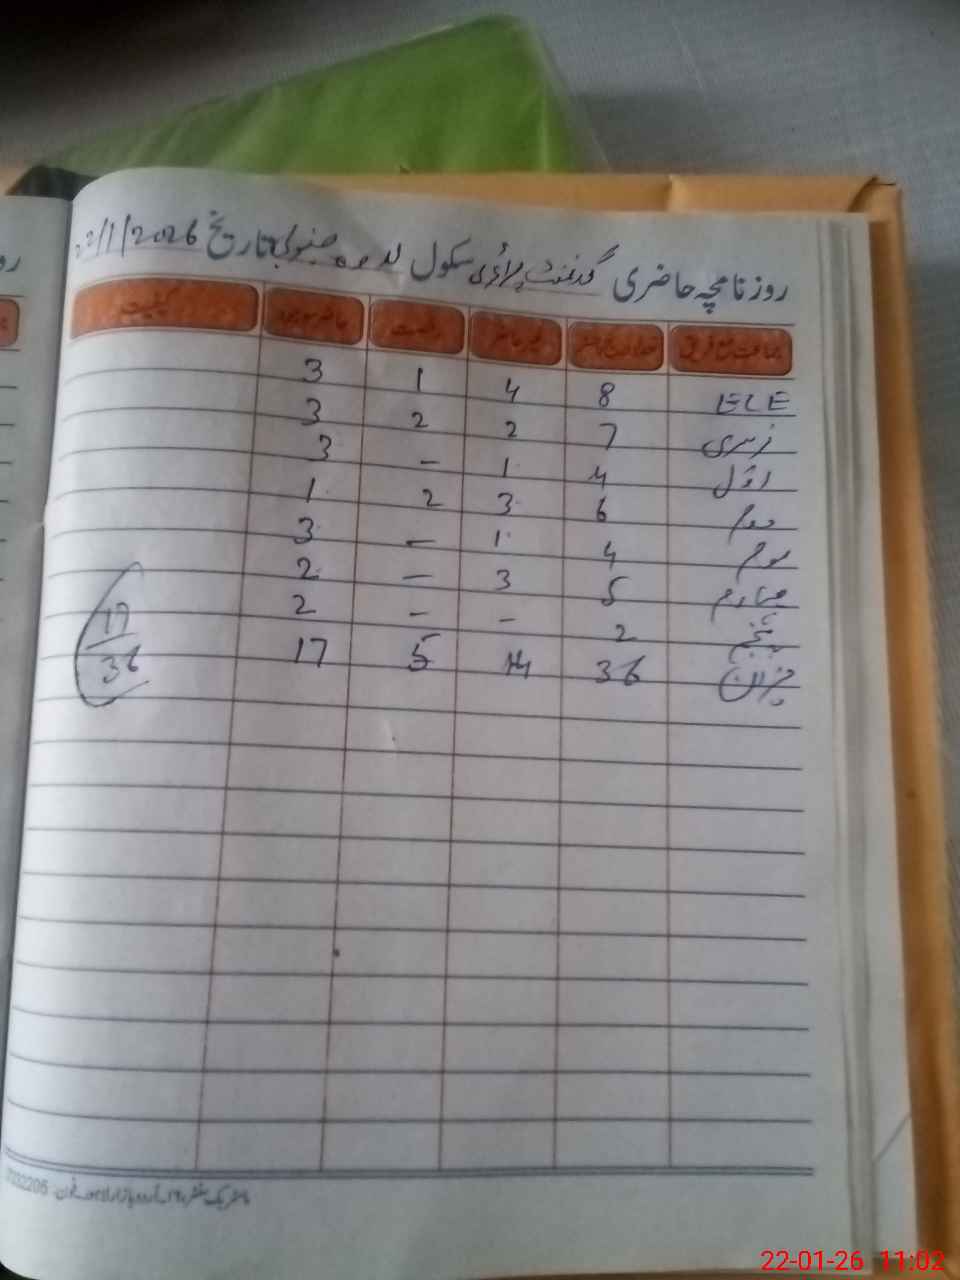 روزنامچہ حاضری گورنمنٹ پرائمری سکول لدھڑ جنوبی تاریخ 22/1/2026
جماعت مع فریق تعداد درج رجسٹر غیر حاضر رخصت حاضر موجود کیفیت
ECE 8 4 1 3
نرسری 7 2 2 3
اوّل 4 1 - 3
دوم 6 3 2 1
سوم 4 1 - 3
چہارم 5 3 - 2
پنجم 2 - - 2
میزان 36 14 5 17
17
36
22-01-26 11:02